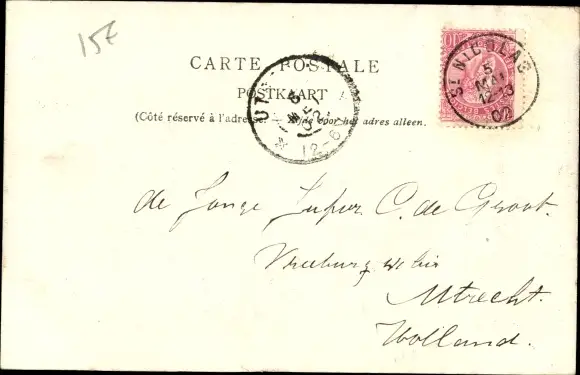 15 £
CARTE POSTALE
POSTKAART
(Côté réservé à l'adresse. Zijde voor het adres alleen.
ST NICOLAS
5
MAI
12-13
02
UT
5
12-6
de Jonge Jufvr. C. de Groot.
Vreeburg
Utrecht.
Holland.